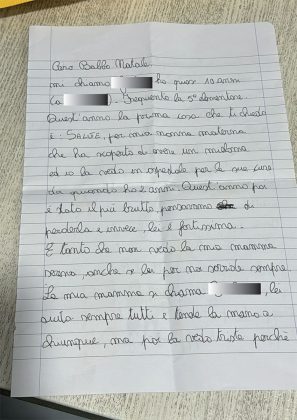 Caro Babbo Natale,
mi chiamo ho quasi 10 anni
(a ). Frequento la 5° elementare.
Quest'anno la prima cosa che ti chiedo
è: SALUTE, per mia nonna materna
che ha scoperto di avere un mieloma
ed io la vedo in ospedale per le sue cure
da quando ho 2 anni. Quest'anno poi
è stato il più brutto, pensavamo di
perderla e invece, lei è fortissima.
E' tanto che non vedo la mia mamma
serena, anche se lei per noi sorride sempre.
La mia mamma si chiama , lei
aiuta sempre tutti e tende la mano a
chiunque, ma poi la vedo triste perchè